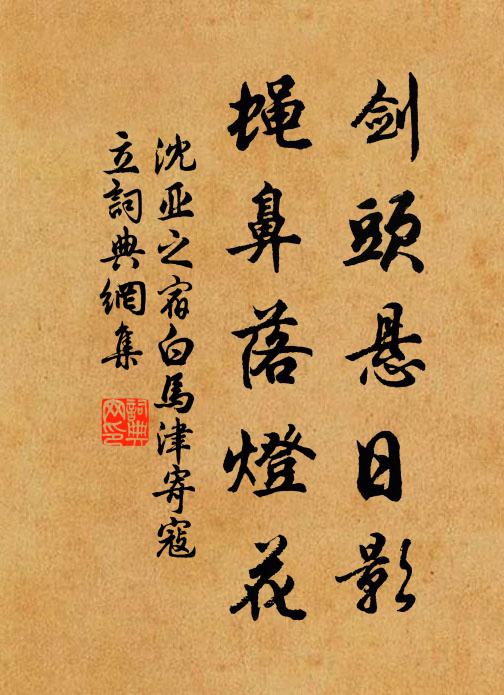 剑頭悬日影
蝇鼻落燈花
沈亚之宿白馬津寄寇
立詞典網集
詞典
网印